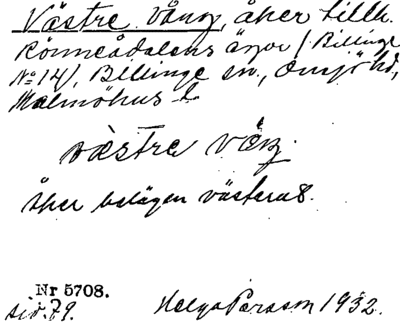 Västre vång, åker tillh.
Rönneådalens ängar (Billinge
No 14), Billinge sn., Onsjö hd,
Malmöhus l.
västre våŋ.
Åker belägen västerut.
Nr 5708.
sid. 79.
Helga Persson 1932.